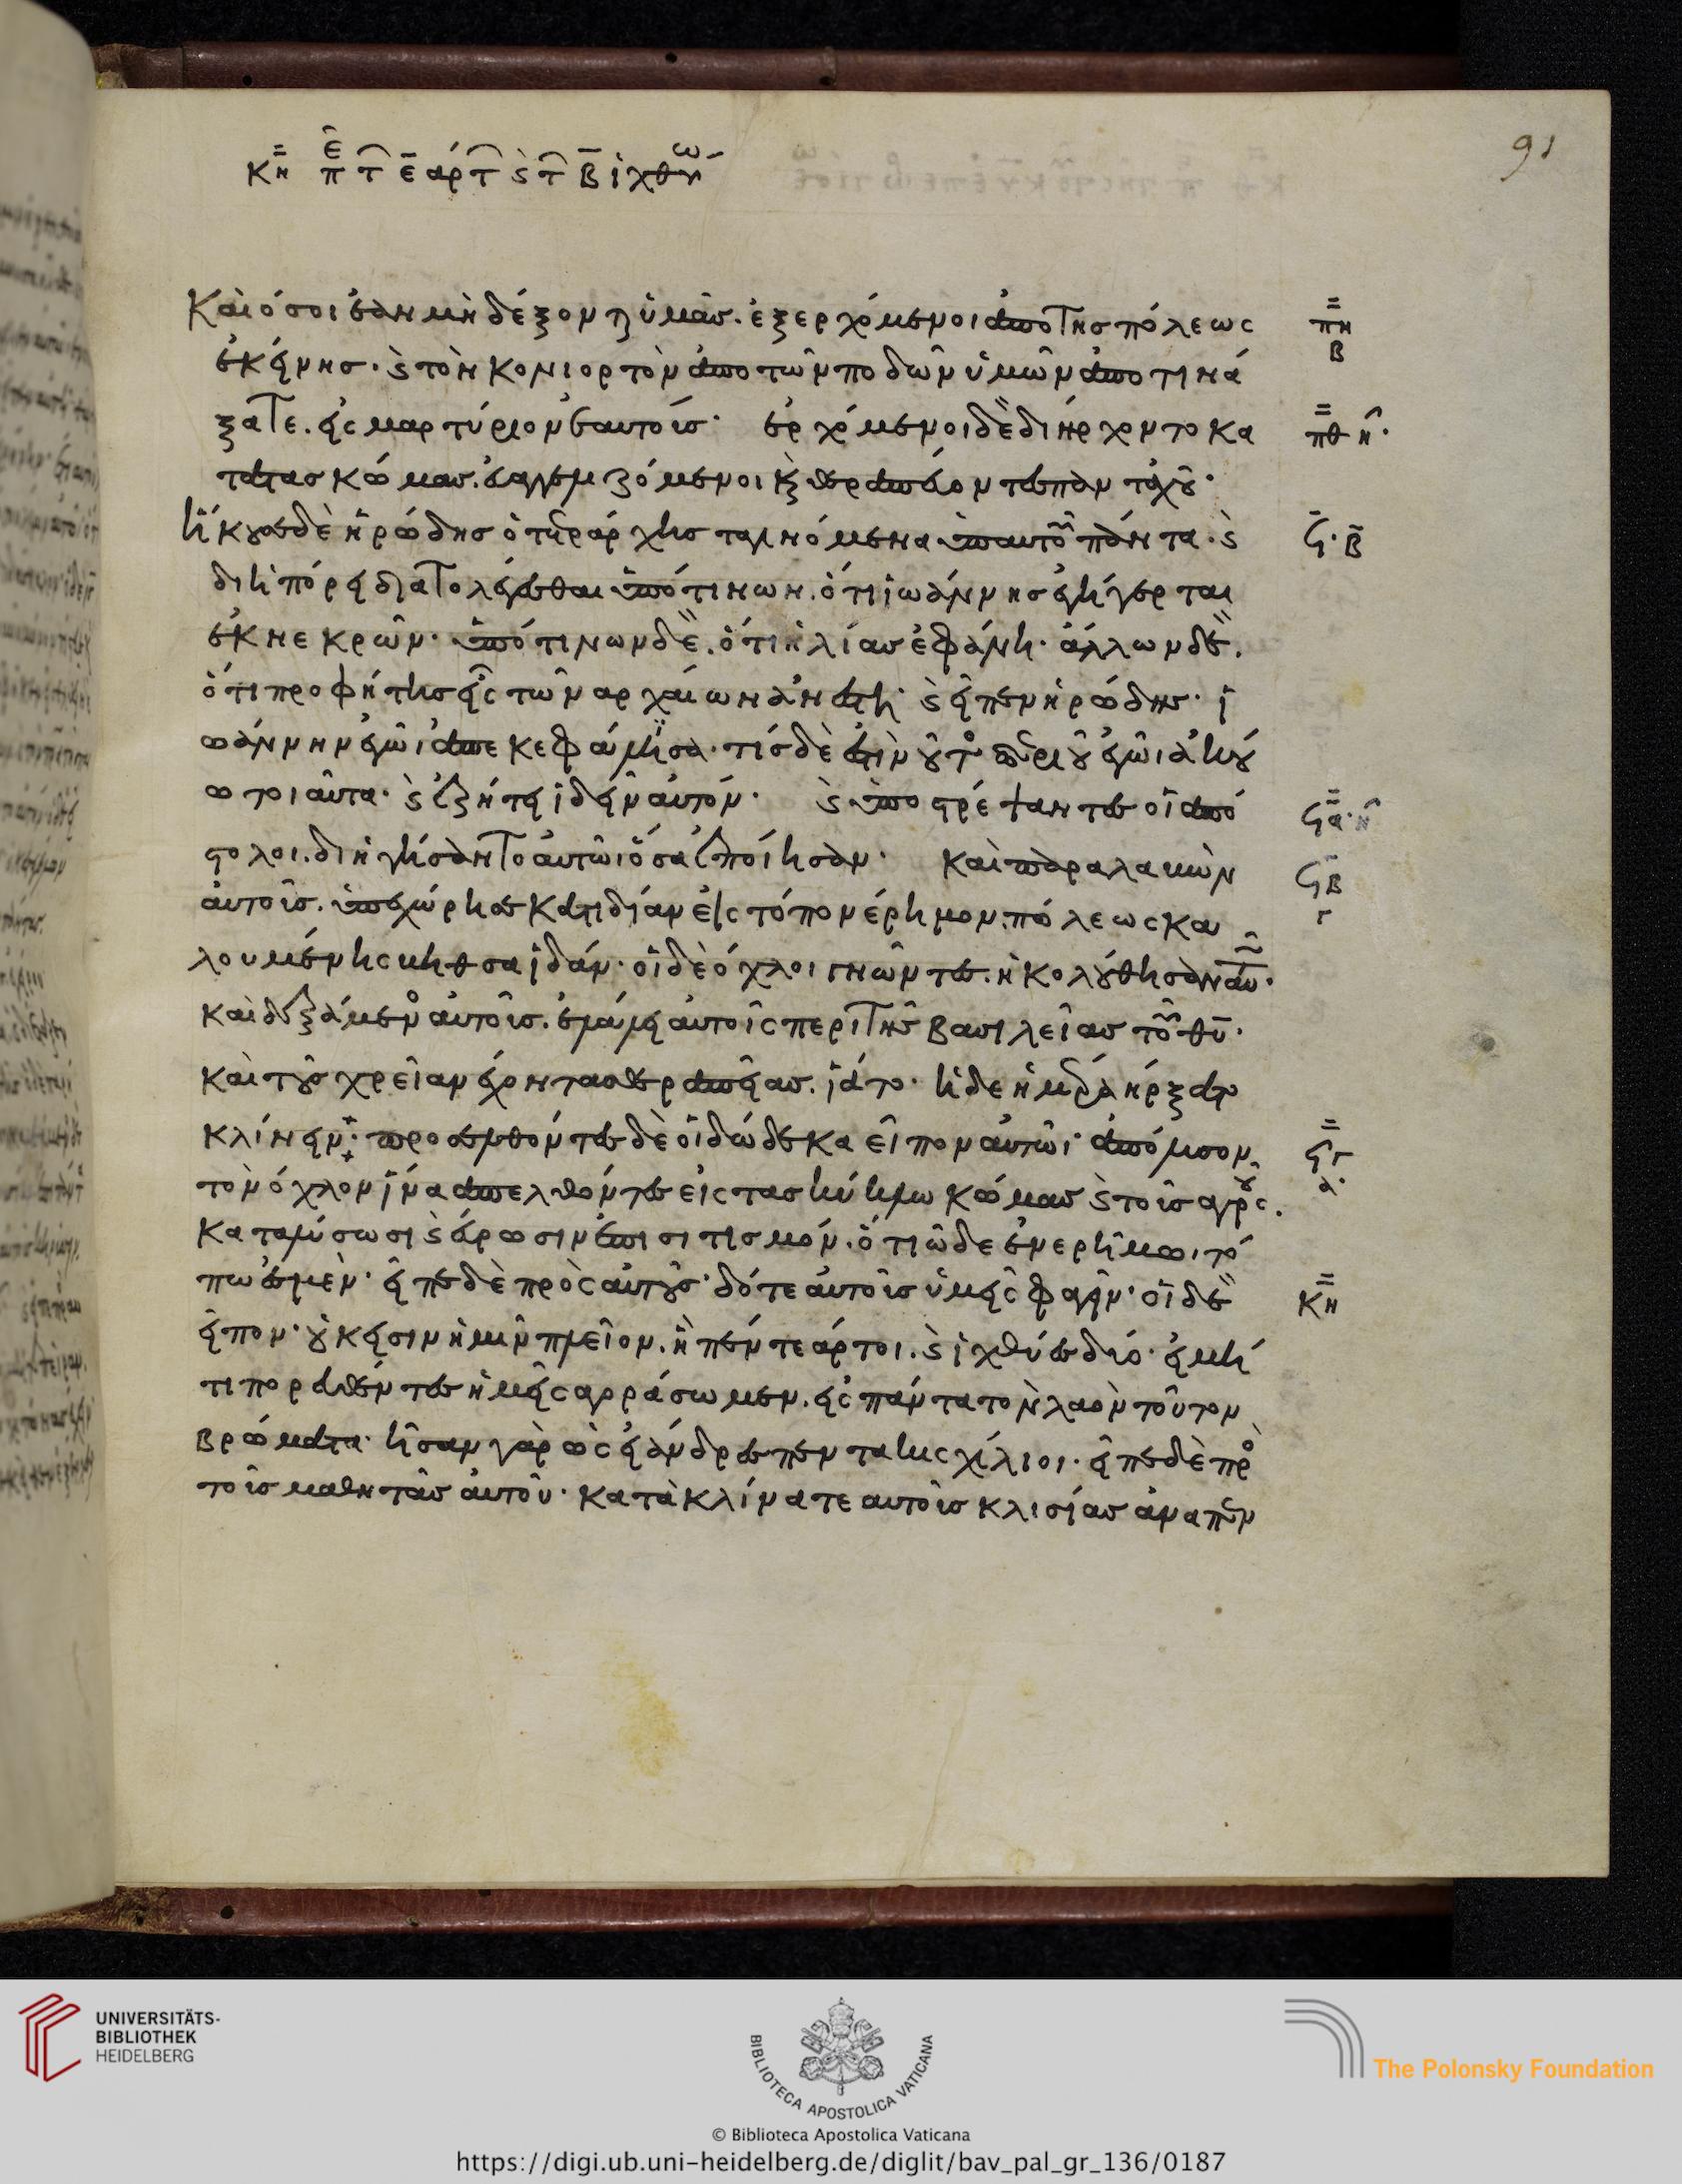 91
κη πε τ ε αρτ ϛ τ β ἰχθύω
Καὶ ὅσοι ἐὰν μὴ δέξονται ὑμᾶς. ἐξερχόμενοι ἀπὸ τῆς πόλεως
ἐκείνης. ϛ τὸν κονιορτὸν ἀπὸ τῶν ποδῶν ὑμῶν ἀποτινά
ξατε. εἰς μαρτύριον ἐπ αυτοῖς· ἐρχόμενοι δὲ διήρχοντο κα
τὰ τὰς κώμας. εὐαγγελιζόμενοι κ θεραπεύοντες πανταχοῦ·
ἤκουσε δὲ ἡρώδης ὁ τετράρχης τὰ γινόμενα ὑπ αυτοῦ πάντα· ϛ
διηπόρει διὰ τὸ λέγεσθαι ὑπό τινων. ὅτι ἰωάννης ἐγήγερται
ἐκ νεκρῶν· ὑπό τινων δὲ. ὅτι ἠλίας ἐφάνη· ἄλλων δὲ.
ὅτι προφήτης εἷς τῶν αρχαίων ἀνέστη· ϛ εἶπεν ἡρώδης· ἰ
ωάννην ἐγὼ ἀπεκεφάλισα· τίς δέ ἐστιν οὗτος περὶ οὗ ἐγὼ ἀκού
ω τοιαῦτα· ϛ ἐζήτει ἰδεῖν αὐτόν· ϛ ὑποστρέψαντες οἱ ἀπό
στολοι. διηγήσαντο αὐτῶι ὅσα ἐποίησαν· καὶ παραλαβὼν
αὐτοὺς. ὑπεχώρησε κατιδίαν εἰς τόπον έρημον. πόλεως κα
λουμένης βηθσαϊδάν· οἱ δὲ όχλοι γνῶντες. ἠκολούθησαν αυ·
καὶ δεξάμενος αὐτοὺς. ἐλάλει αὐτοῖς περὶ τῆς βασιλείας τοῦ θυ·
καὶ τοὺς χρείαν έχοντας θεραπείας. ἰᾶτο· ἡ δε ἡμέρα ήρξατο
κλίνειν· προσελθόντες δὲ οἱ δώδεκα εἶπον αὐτῶι· ἀπόλυσον
τὸν όχλον ἵνα ἀπελθόντες εἰς τας κύκλω κώμας ϛ τοὺς αγρούς.
καταλύσωσι ϛ εύρωσιν ἐπισιτισμόν· ὅτι ὧδε ἐν ερήμωι τό
πω ἐσμέν· εἶπε δὲ πρὸς αὐτοὺς· δότε αὐτοῖς ὑμεῖς φαγεῖν· οἱ δὲ
εἶπον· οὐκ εἰσιν ἡμῖν πλεῖον. ἢ πέντε άρτοι. ϛ ἰχθύες δύο· εἰ μή
τι πορευθέντες ἡμεῖς αγοράσωμεν. εἰς πάντα τὸν λαὸν τοῦτον
βρώματα· ἦσαν γὰρ ὡσεὶ άνδρες πεντακισχίλιοι· εἶπε δὲ πρὸς
τοὺς μαθητὰς αὐτοῦ· κατακλίνατε αυτοὺς κλισίας ἀνα πεν
πη
β
πθ η·
ϟ·β
ϟα·η
ϟβ
γ
ϟγ
α·
κη
UNIVERSITÄTS-
BIBLIOTHEK
HEIDELBERG
BIBLIOTECA APOSTOLICA VATICANA
The Polonsky Foundation
© Biblioteca Apostolica Vaticana
https://digi.ub.uni-heidelberg.de/diglit/bav_pal_gr_136/0187